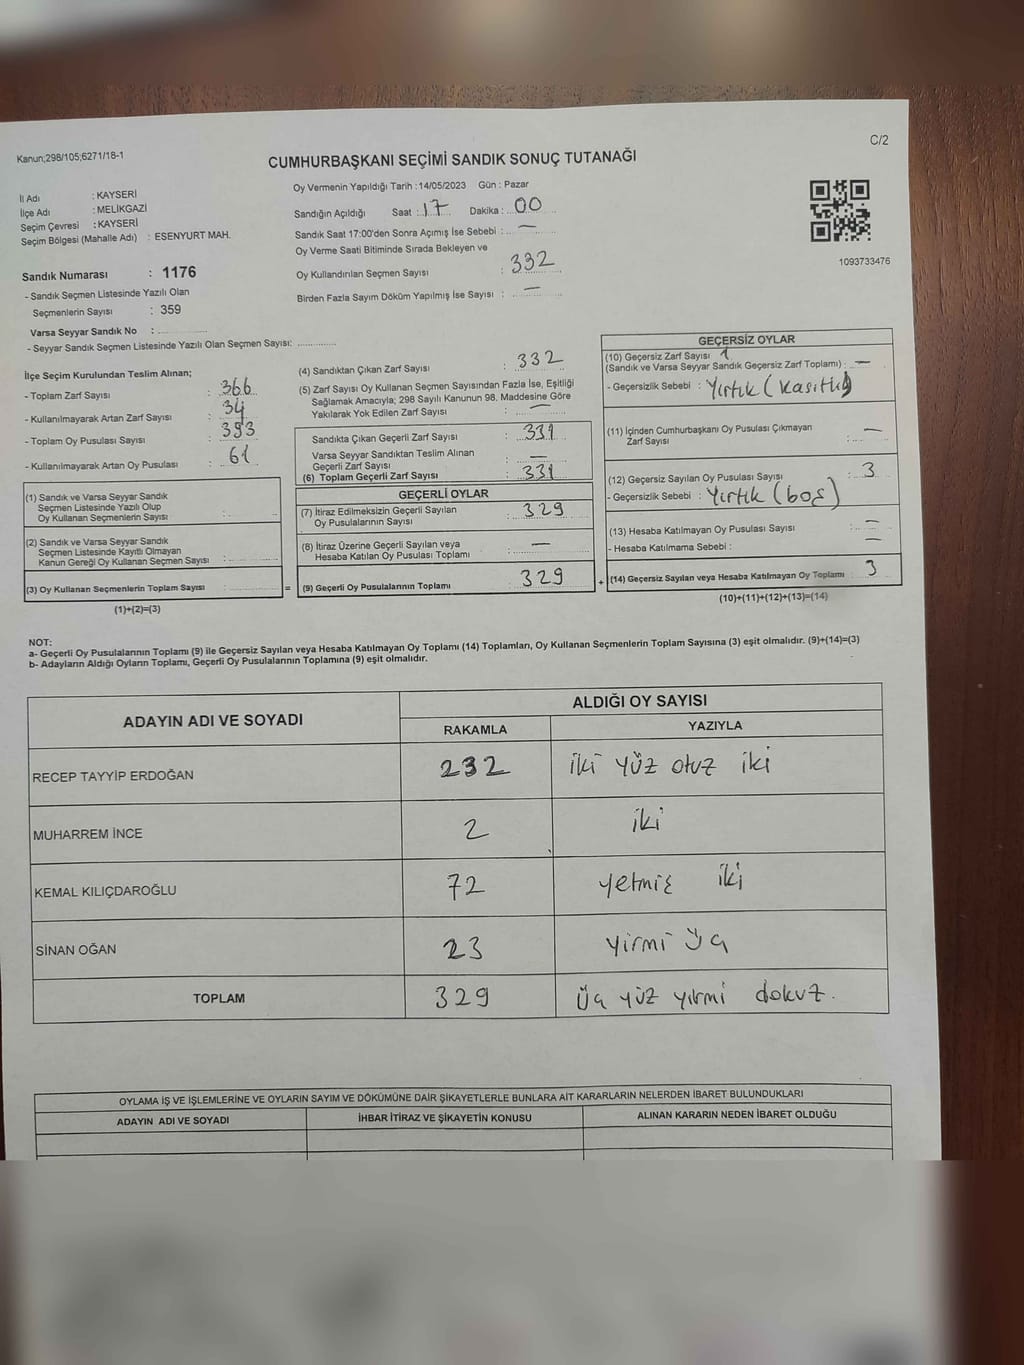 Kanun;298/105;6271/18-1
C/2
CUMHURBAŞKANI SEÇİMİ SANDIK SONUÇ TUTANAĞI
İl Adı : KAYSERİ
İlçe Adı : MELİKGAZİ
Seçim Çevresi : KAYSERİ
Seçim Bölgesi (Mahalle Adı) : ESENYURT MAH.
Sandık Numarası : 1176
- Sandık Seçmen Listesinde Yazılı Olan
Seçmenlerin Sayısı : 359
Varsa Seyyar Sandık No : ..............
- Seyyar Sandık Seçmen Listesinde Yazılı Olan Seçmen Sayısı: ............
Oy Vermenin Yapıldığı Tarih : 14/05/2023 Gün : Pazar
Sandığın Açıldığı Saat : 17 Dakika : 00
Sandık Saat 17:00'den Sonra Açımış İse Sebebi : —
Oy Verme Saati Bitiminde Sırada Bekleyen ve
Oy Kullandırılan Seçmen Sayısı : 332
Birden Fazla Sayım Döküm Yapılmış İse Sayısı : —
1093733476
İlçe Seçim Kurulundan Teslim Alınan;
- Toplam Zarf Sayısı : 366
- Kullanılmayarak Artan Zarf Sayısı : 34
- Toplam Oy Pusulası Sayısı : 393
- Kullanılmayarak Artan Oy Pusulası : 61
(1) Sandık ve Varsa Seyyar Sandık
Seçmen Listesinde Yazılı Olup
Oy Kullanan Seçmenlerin Sayısı :
(2) Sandık ve Varsa Seyyar Sandık
Seçmen Listesinde Kayıtlı Olmayan
Kanun Gereği Oy Kullanan Seçmen Sayısı :
(3) Oy Kullanan Seçmenlerin Toplam Sayısı : =
(1)+(2)=(3)
(4) Sandıktan Çıkan Zarf Sayısı : 332
(5) Zarf Sayısı Oy Kullanan Seçmen Sayısından Fazla İse, Eşitliği
Sağlamak Amacıyla; 298 Sayılı Kanunun 98. Maddesine Göre
Yakılarak Yok Edilen Zarf Sayısı : —
Sandıkta Çıkan Geçerli Zarf Sayısı : 331
Varsa Seyyar Sandıktan Teslim Alınan
Geçerli Zarf Sayısı : —
(6) Toplam Geçerli Zarf Sayısı : 331
GEÇERLİ OYLAR
(7) İtiraz Edilmeksizin Geçerli Sayılan
Oy Pusulalarının Sayısı : 329
(8) İtiraz Üzerine Geçerli Sayılan veya
Hesaba Katılan Oy Pusulası Toplamı : —
(9) Geçerli Oy Pusulalarının Toplamı : 329 +
GEÇERSİZ OYLAR
(10) Geçersiz Zarf Sayısı 1
(Sandık ve Varsa Seyyar Sandık Geçersiz Zarf Toplamı) : —
- Geçersizlik Sebebi : Yırtık (kasıtlı)
(11) İçinden Cumhurbaşkanı Oy Pusulası Çıkmayan
Zarf Sayısı : —
(12) Geçersiz Sayılan Oy Pusulası Sayısı : 3
- Geçersizlik Sebebi : Yırtık (boş)
(13) Hesaba Katılmayan Oy Pusulası Sayısı : —
- Hesaba Katılmama Sebebi : —
(14) Geçersiz Sayılan veya Hesaba Katılmayan Oy Toplamı : 3
(10)+(11)+(12)+(13)=(14)
NOT:
a- Geçerli Oy Pusulalarının Toplamı (9) ile Geçersiz Sayılan veya Hesaba Katılmayan Oy Toplamı (14) Toplamları, Oy Kullanan Seçmenlerin Toplam Sayısına (3) eşit olmalıdır. (9)+(14)=(3)
b- Adayların Aldığı Oyların Toplamı, Geçerli Oy Pusulalarının Toplamına (9) eşit olmalıdır.
ADAYIN ADI VE SOYADI
ALDIĞI OY SAYISI
RAKAMLA YAZIYLA
RECEP TAYYİP ERDOĞAN 232 iki yüz otuz iki
MUHARREM İNCE 2 iki
KEMAL KILIÇDAROĞLU 72 yetmiş iki
SİNAN OĞAN 23 yirmi üç
TOPLAM 329 üç yüz yirmi dokuz.
OYLAMA İŞ VE İŞLEMLERİNE VE OYLARIN SAYIM VE DÖKÜMÜNE DAİR ŞİKAYETLERLE BUNLARA AİT KARARLARIN NELERDEN İBARET BULUNDUKLARI
ADAYIN ADI VE SOYADI İHBAR İTİRAZ VE ŞİKAYETİN KONUSU ALINAN KARARIN NEDEN İBARET OLDUĞU